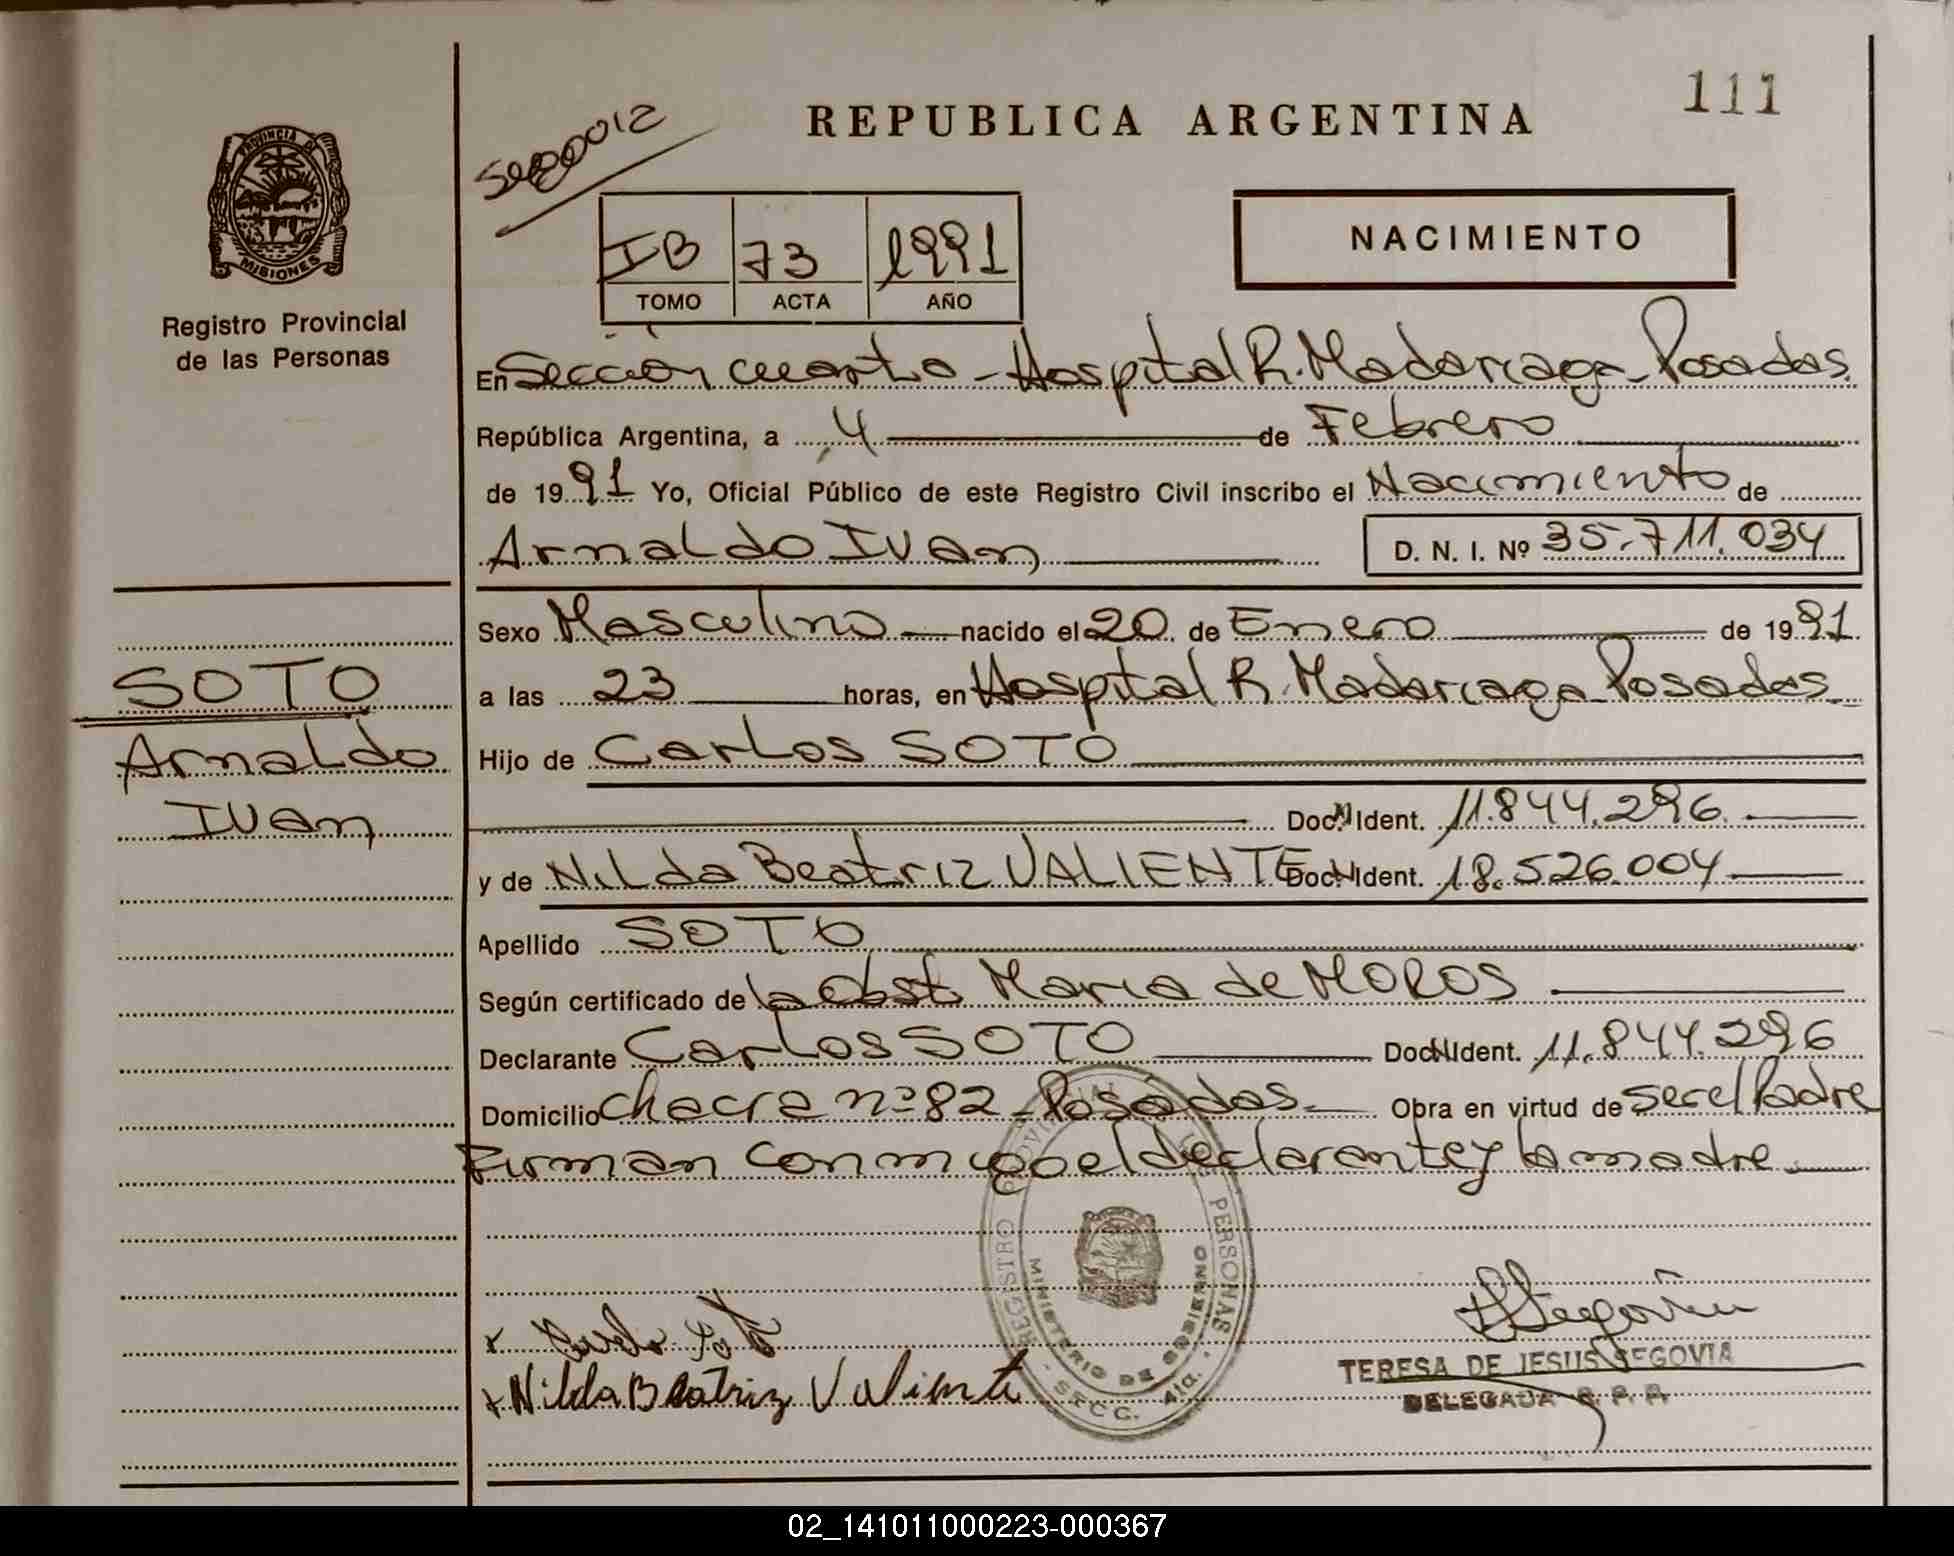 111
REPUBLICA ARGENTINA
PROVINCIA DE
MISIONES
Registro Provincial
de las Personas
NACIMIENTO
IB 73 1991
TOMO ACTA AÑO
En Sección cuarta - Hospital R. Madariaga - Posadas
República Argentina, a 4 de Febrero
de 1991 Yo, Oficial Público de este Registro Civil inscribo el Nacimiento de
Arnaldo Ivan D. N. I. Nº 35.711.034
Sexo Masculino nacido el 20 de Enero de 1991
a las 23 horas, en Hospital R. Madariaga Posadas
Hijo de Carlos SOTO
Doc. N Ident. 11.844.296
y de Nilda Beatriz VALIENTE Doc N Ident. 18.526.004
Apellido SOTO
Según certificado de la Obst. Maria de MOROS
Declarante Carlos SOTO Doc N Ident. 11.844.296
Domicilio Chacra nº 82 - Posadas - Obra en virtud de ser el Padre
Firman conmigo el declarante y la madre
SOTO
Arnaldo
Ivan
REGISTRO PROVINCIAL DE LAS PERSONAS
MINISTERIO DE GOBIERNO
SECC. 4ta.
x Carlos Soto
x Nilda Beatriz Valiente
Segovia
TERESA DE JESUS SEGOVIA
DELEGADA R. P. P.
02_141011000223-000367